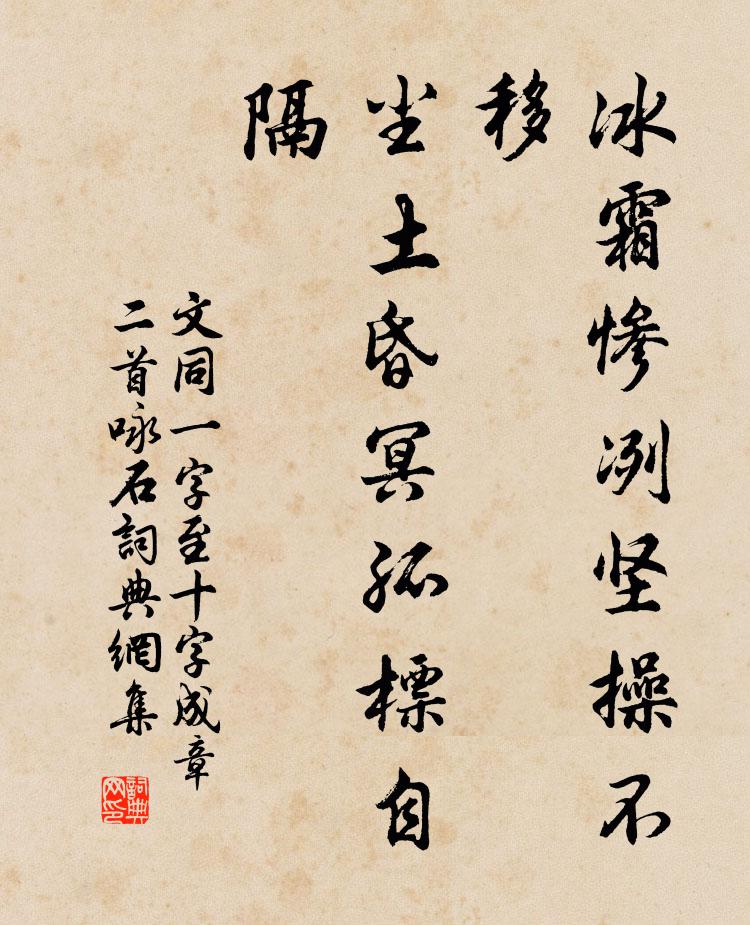 冰霜惨冽坚操不
移
尘土昏冥孤標自
隔
文同一字至十字成章
二首咏石詞典網集
詞典网印